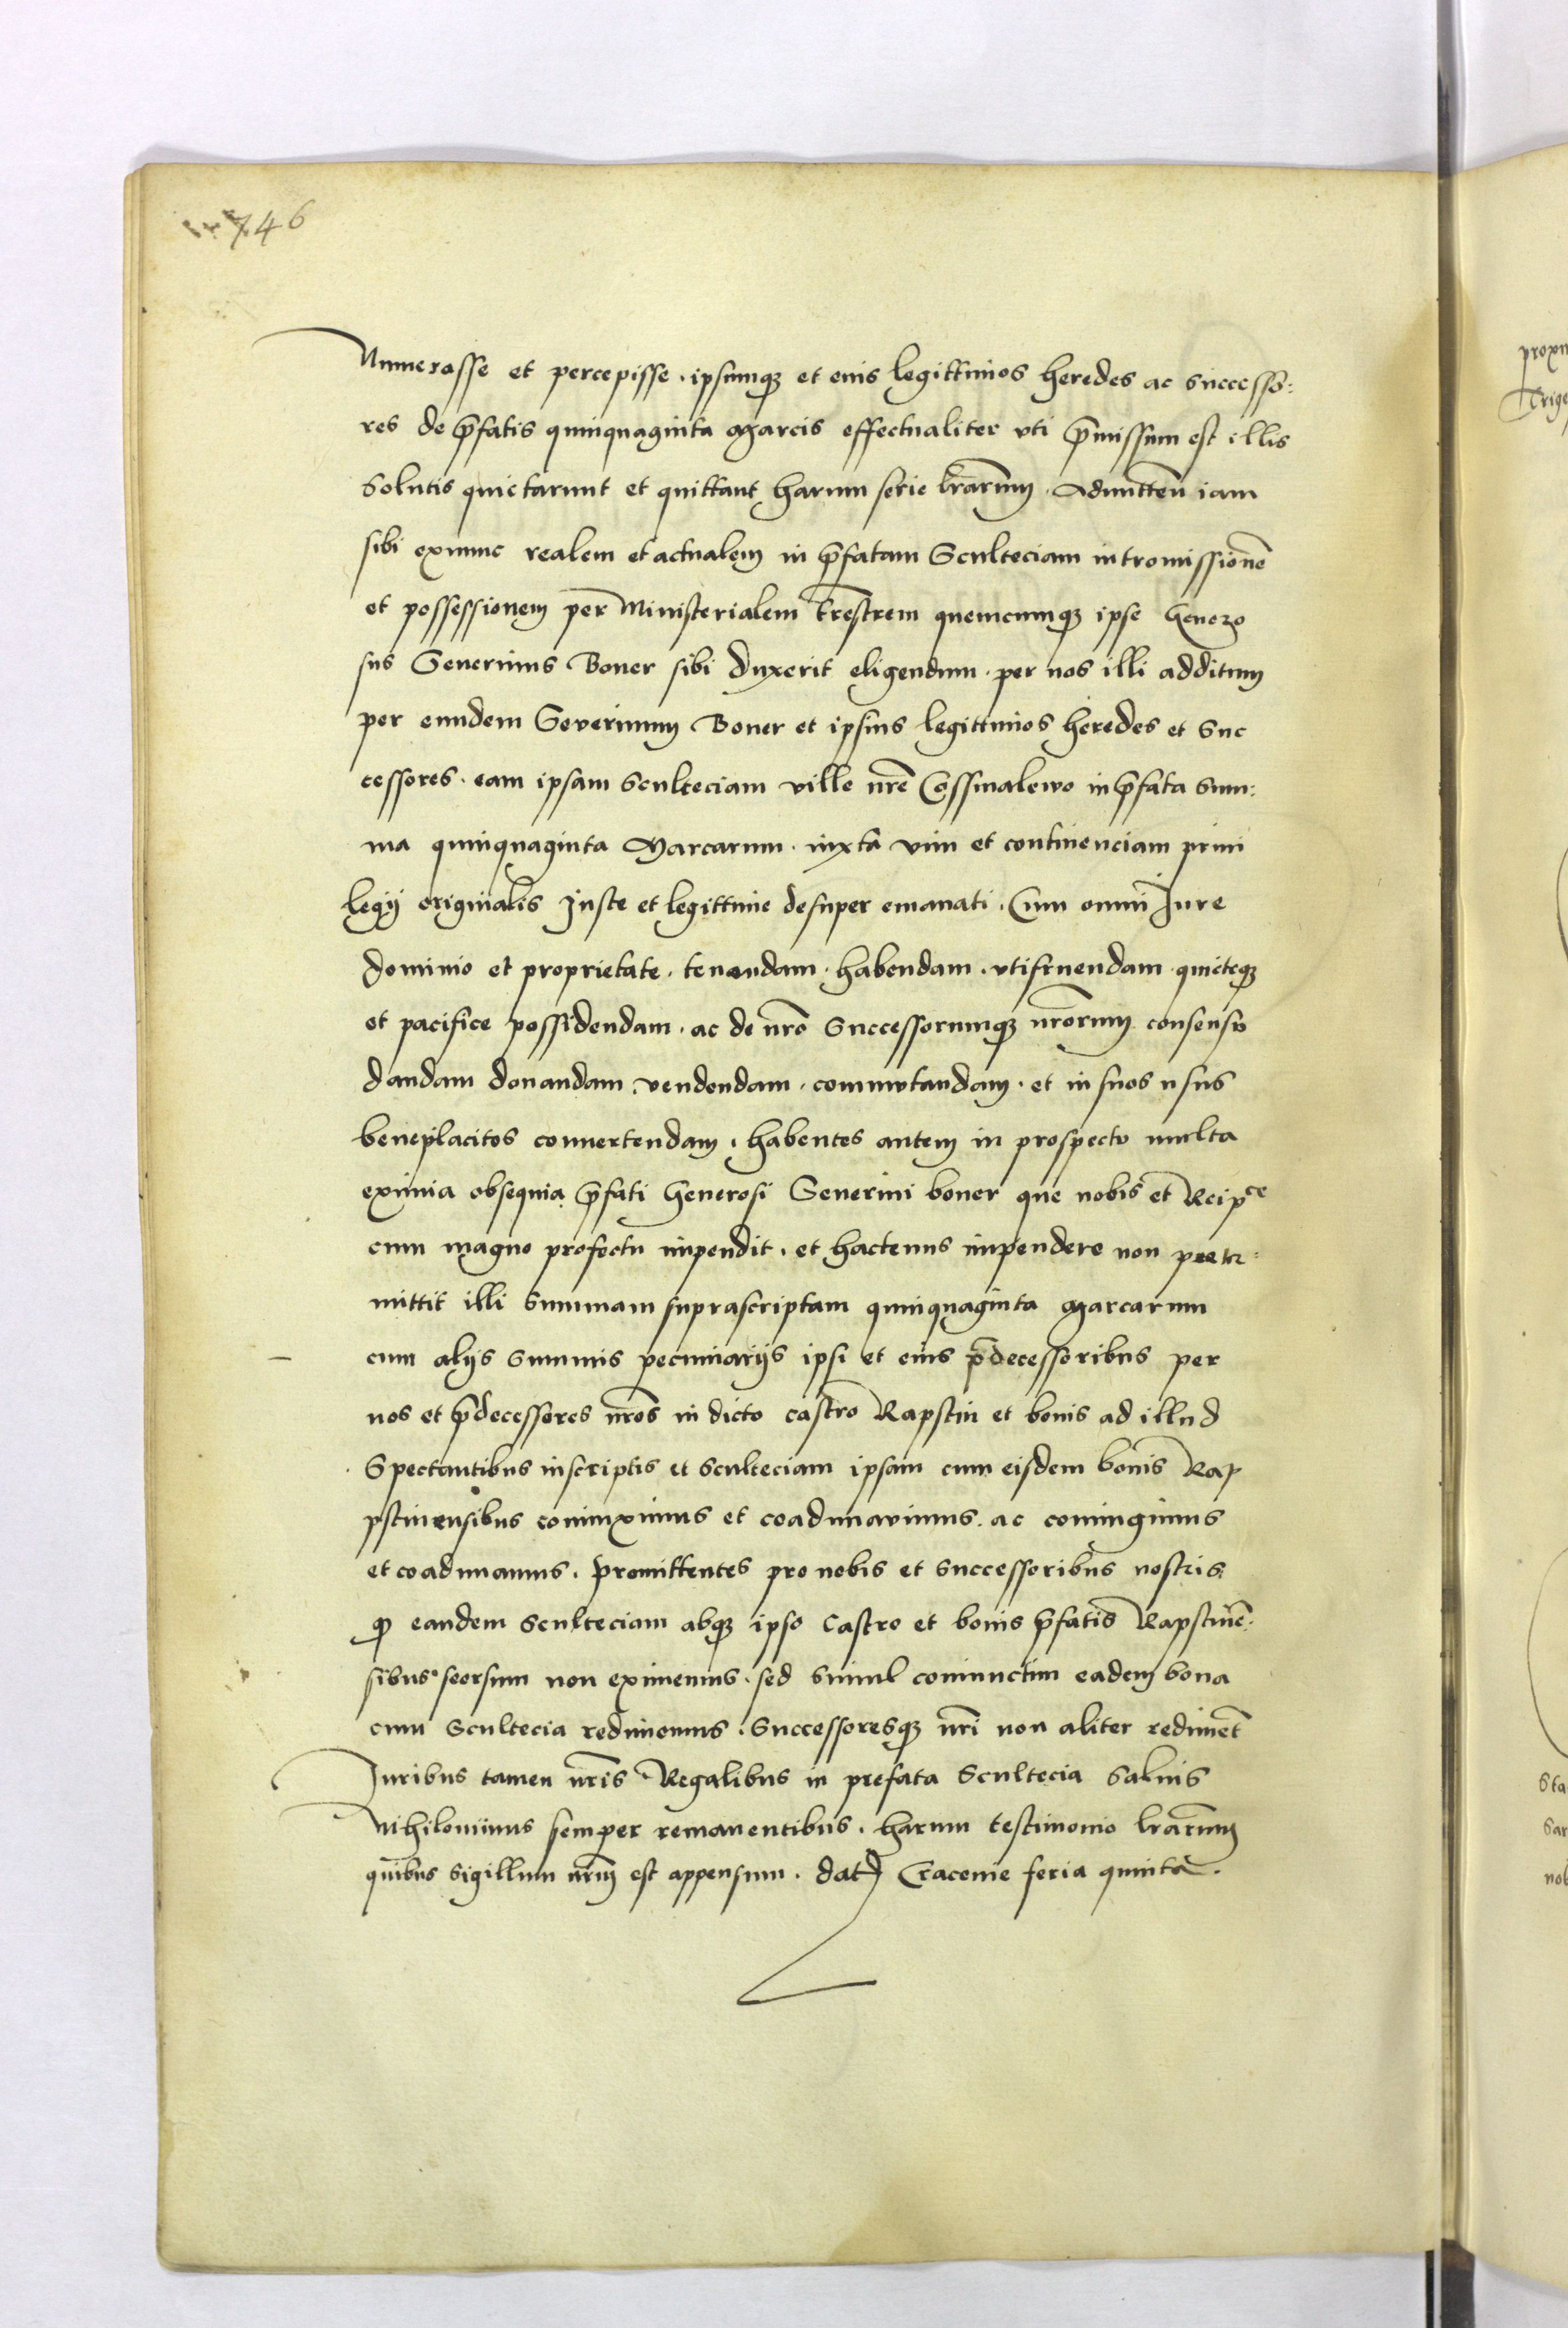 746
Numerasse et percepisse. ipsumq3 et eius legittimos heredes ac successo:
res de p̄fatis quinquaginta Marcis effectualiter vti p̄missum est illis
Solutis quietarunt et quittant harum serie l̄rarum. Admitten̄ iam
sibi exnunc realem et actualem in p̄fatam Scultetiam intromissionē
et possessionem per Ministerialem t̄restrem quemcumq3 ipse Genero
sus Seuerinus Boner sibi duxerit eligendum. per nos illi additum
per eundem Severinum Boner et ipsius legittimos heredes et Suc
cessores. eam ipsam Sculteciam ville nr̄e Cossmalewo in p̄fata Sum:
ma quinquaginta Marcarum. iuxta vim et continenciam priui
legij originalis Juste et legittime desuper emanati. Cum omni Jure
dominio et proprietate. tenendam. habendam. vtifruendam. quieteq3
et pacifice possidendam. ac de nr̄o Successorumq3 nr̄orum consensu
dandam donandam vendendam. commutandam. et in suos usus
beneplacitos conuertendam. habentes autem in prospectu multa
eximia obsequia p̄fati Generosi Seuerini boner que nobis et Reipce
cum magno profectu impendit. et hactenus impendere non preter:
mittit illi Summam suprascriptam quinquaginta Marcarum
cum alijs Summis pecuniarijs ipsi et eius p̄decessoribus per
nos et p̄decessores nr̄os in dicto castro Rapstin et bonis ad illud
Spectantibus inscriptis et Sculteciam ipsam cum eisdem bonis Rap
pstinensibus coniunximus et coadunauimus. ac coniungimus
et coadunamus. Promittentes pro nobis et Successoribus nostris
q̄ eandem Sculteciam absq3 ipso Castro et bonis p̄fatis Rapstinē
sibus seorsum non eximemus. sed Simul coniunctim eadem bona
cum Scultecia redimemus. Successoresq3 nr̄i non aliter rediment
Juribus tamen nr̄is Regalibus in prefata Scultecia Saluis
Nihilominus semper remanentibus. harum testimonio l̄rarum
quibus Sigillum nr̄um est appensum. dat̄ Cracouie feria quinta.